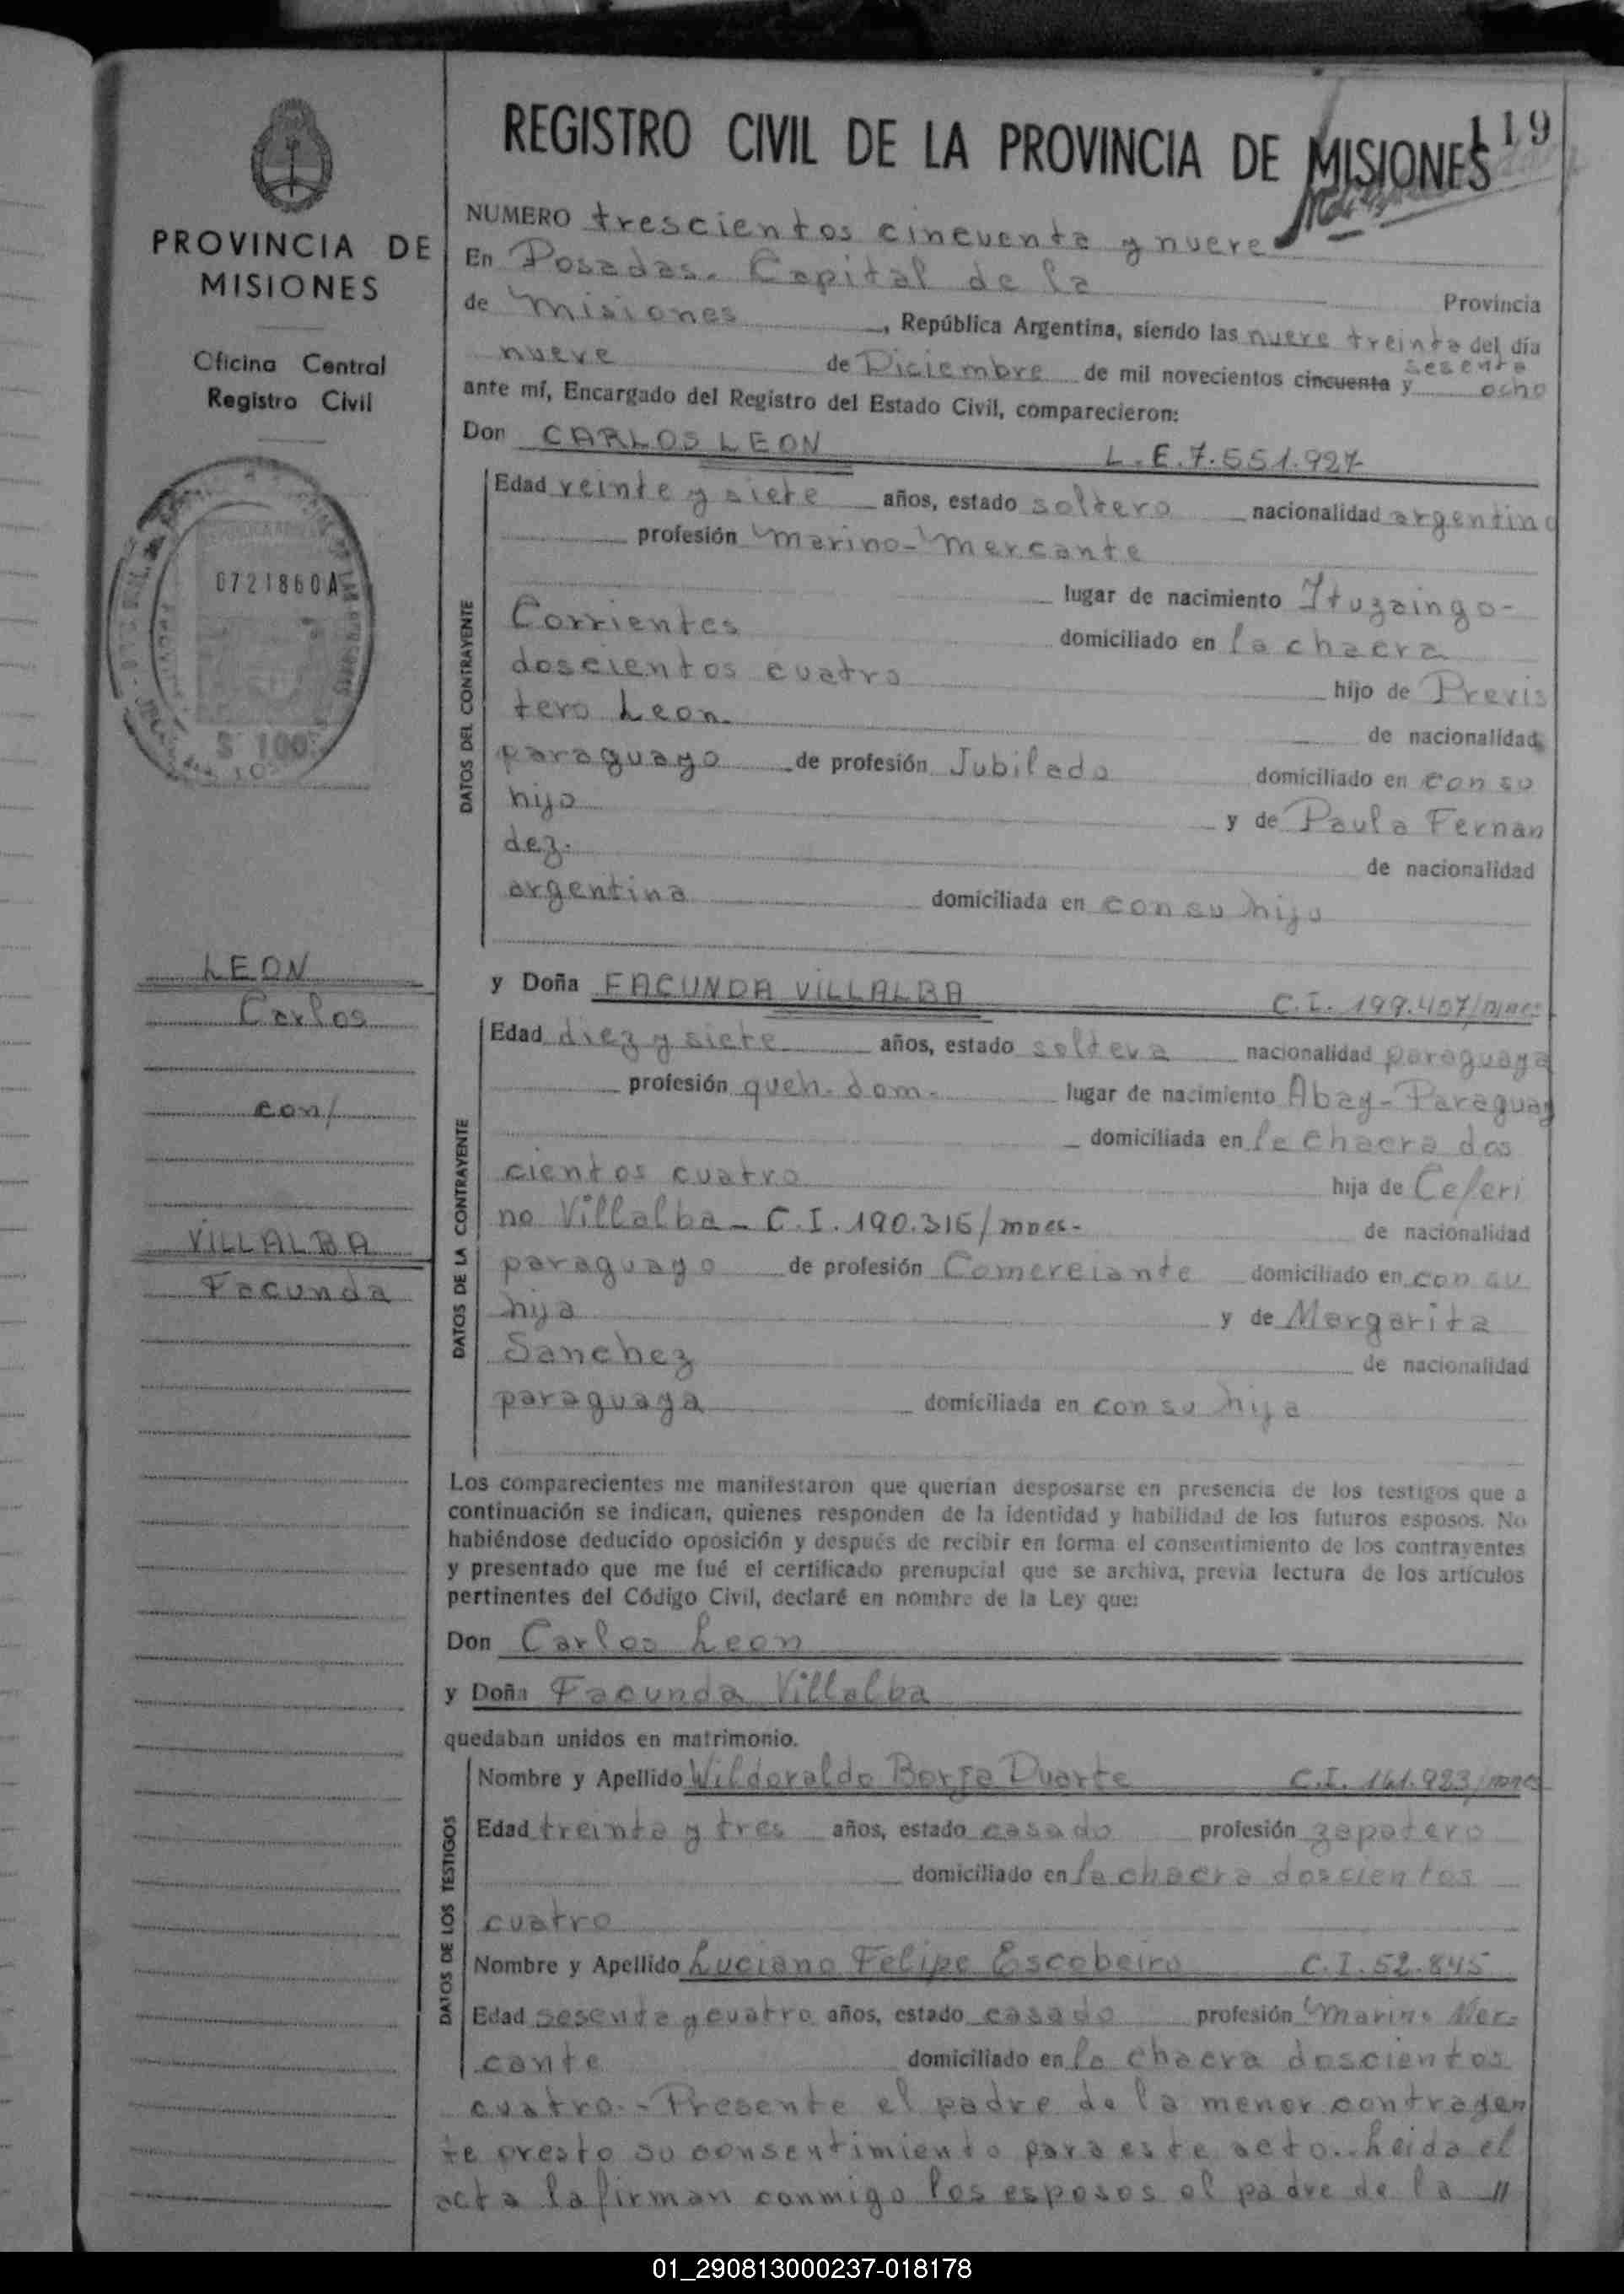 REGISTRO CIVIL DE LA PROVINCIA DE MISIONES
119
PROVINCIA DE
MISIONES
Oficina Central
Registro Civil
0721860A
$ 100
LEON
Carlos
con/
VILLALBA
Facunda
NUMERO trescientos cincuenta y nueve
En Posadas. Capital de la Provincia
de Misiones, República Argentina, siendo las nueve treinta del día
nueve de Diciembre de mil novecientos cincuenta y sesenta ocho
ante mí, Encargado del Registro del Estado Civil, comparecieron:
Don CARLOS LEON L.E. 7.551.927
DATOS DEL CONTRAYENTE
Edad veinte y siete años, estado soltero nacionalidad argentino
profesión Marino-Mercante
lugar de nacimiento Ituzaingo-
Corrientes domiciliado en la chacra
doscientos cuatro hijo de Previs
tero Leon. de nacionalidad
paraguayo de profesión Jubilado domiciliado en con su
hijo y de Paula Fernan
dez. de nacionalidad
argentina domiciliada en con su hijo
y Doña FACUNDA VILLALBA C.I. 199.407/mnes
DATOS DE LA CONTRAYENTE
Edad diez y siete años, estado soltera nacionalidad paraguaya
profesión queh-dom- lugar de nacimiento Abay-Paraguay
domiciliada en la chacra dos
cientos cuatro hija de Ceferi
no Villalba - C.I. 190.316/mnes- de nacionalidad
paraguayo de profesión Comerciante domiciliado en con su
hija y de Margarita
Sanchez de nacionalidad
paraguaya domiciliada en con su hija
Los comparecientes me manifestaron que querían desposarse en presencia de los testigos que a
continuación se indican, quienes responden de la identidad y habilidad de los futuros esposos. No
habiéndose deducido oposición y después de recibir en forma el consentimiento de los contrayentes
y presentado que me fué el certificado prenupcial que se archiva, previa lectura de los artículos
pertinentes del Código Civil, declaré en nombre de la Ley que:
Don Carlos Leon
y Doña Facunda Villalba
quedaban unidos en matrimonio.
DATOS DE LOS TESTIGOS
Nombre y Apellido Wilderaldo Borja Duarte C.I. 161.923/mnes
Edad treinta y tres años, estado casado profesión zapatero
domiciliado en la chacra doscientos
cuatro
Nombre y Apellido Luciano Felipe Escobeiro C.I. 52.845
Edad sesenta y cuatro años, estado casado profesión Marino Mer-
cante domiciliado en la chacra doscientos
cuatro.- Presente el padre de la menor contrayen
te presto su consentimiento para este acto.. Leida el
acta la firman conmigo los esposos el padre de la //
01_290813000237-018178